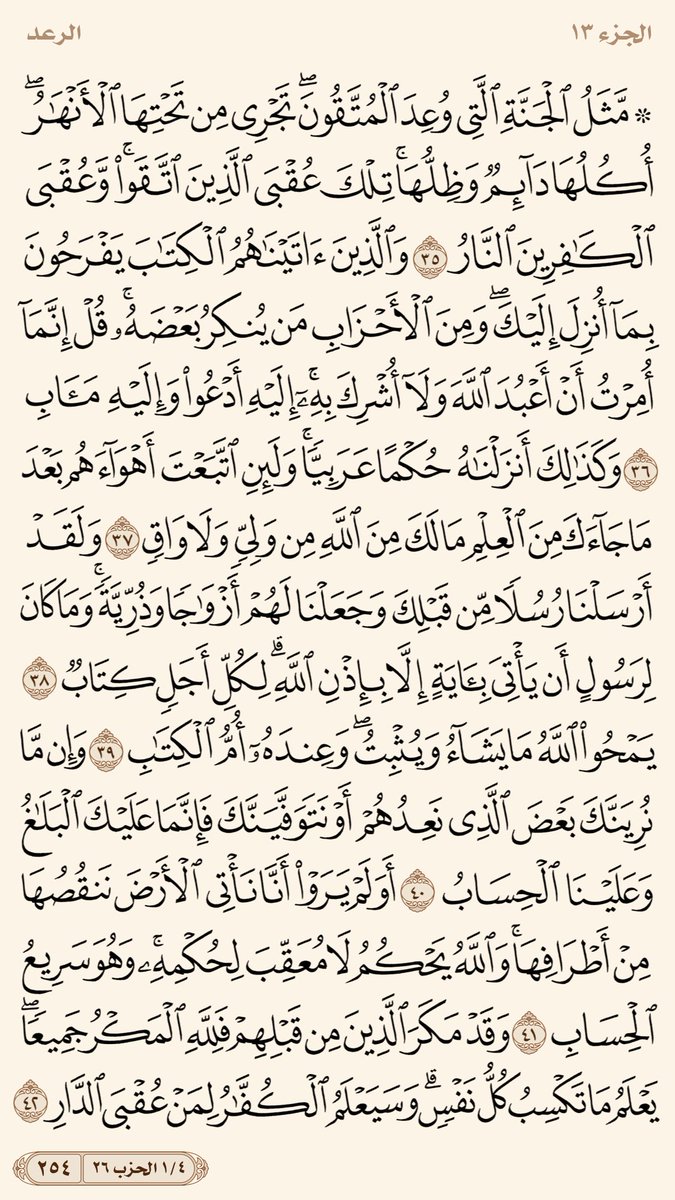 الجزء ١٣
الرعد
۞ مَّثَلُ ٱلْجَنَّةِ ٱلَّتِى وُعِدَ ٱلْمُتَّقُونَۖ تَجْرِى مِن تَحْتِهَا ٱلْأَنْهَٰرُۖ
أُكُلُهَا دَآئِمٌ وَظِلُّهَاۚ تِلْكَ عُقْبَى ٱلَّذِينَ ٱتَّقَوا۟ۚ وَّعُقْبَى
ٱلْكَٰفِرِينَ ٱلنَّارُ ٣٥ وَٱلَّذِينَ ءَاتَيْنَٰهُمُ ٱلْكِتَٰبَ يَفْرَحُونَ
بِمَآ أُنزِلَ إِلَيْكَۖ وَمِنَ ٱلْأَحْزَابِ مَن يُنكِرُ بَعْضَهُۥۚ قُلْ إِنَّمَآ
أُمِرْتُ أَنْ أَعْبُدَ ٱللَّهَ وَلَآ أُشْرِكَ بِهِۦٓۚ إِلَيْهِ أَدْعُوا۟ وَإِلَيْهِ مَـَٔابِ
٣٦ وَكَذَٰلِكَ أَنزَلْنَٰهُ حُكْمًا عَرَبِيًّاۚ وَلَئِنِ ٱتَّبَعْتَ أَهْوَآءَهُم بَعْدَ
مَا جَآءَكَ مِنَ ٱلْعِلْمِ مَا لَكَ مِنَ ٱللَّهِ مِن وَلِىٍّ وَلَا وَاقٍ ٣٧ وَلَقَدْ
أَرْسَلْنَا رُسُلًا مِّن قَبْلِكَ وَجَعَلْنَا لَهُمْ أَزْوَٰجًا وَذُرِّيَّةًۚ وَمَا كَانَ
لِرَسُولٍ أَن يَأْتِىَ بِـَٔايَةٍ إِلَّا بِإِذْنِ ٱللَّهِۗ لِكُلِّ أَجَلٍ كِتَابٌ ٣٨
يَمْحُوا۟ ٱللَّهُ مَا يَشَآءُ وَيُثْبِتُۖ وَعِندَهُۥٓ أُمُّ ٱلْكِتَٰبِ ٣٩ وَإِن مَّا
نُرِيَنَّكَ بَعْضَ ٱلَّذِى نَعِدُهُمْ أَوْ نَتَوَفَّيَنَّكَ فَإِنَّمَا عَلَيْكَ ٱلْبَلَٰغُ
وَعَلَيْنَا ٱلْحِسَابُ ٤٠ أَوَلَمْ يَرَوْا۟ أَنَّا نَأْتِى ٱلْأَرْضَ نَنقُصُهَا
مِنْ أَطْرَافِهَاۚ وَٱللَّهُ يَحْكُمُ لَا مُعَقِّبَ لِحُكْمِهِۦۚ وَهُوَ سَرِيعُ
ٱلْحِسَابِ ٤١ وَقَدْ مَكَرَ ٱلَّذِينَ مِن قَبْلِهِمْ فَلِلَّهِ ٱلْمَكْرُ جَمِيعًاۖ
يَعْلَمُ مَا تَكْسِبُ كُلُّ نَفْسٍۗ وَسَيَعْلَمُ ٱلْكُفَّٰرُ لِمَنْ عُقْبَى ٱلدَّارِ ٤٢
١/٤ الحزب ٢٦
٢٥٤